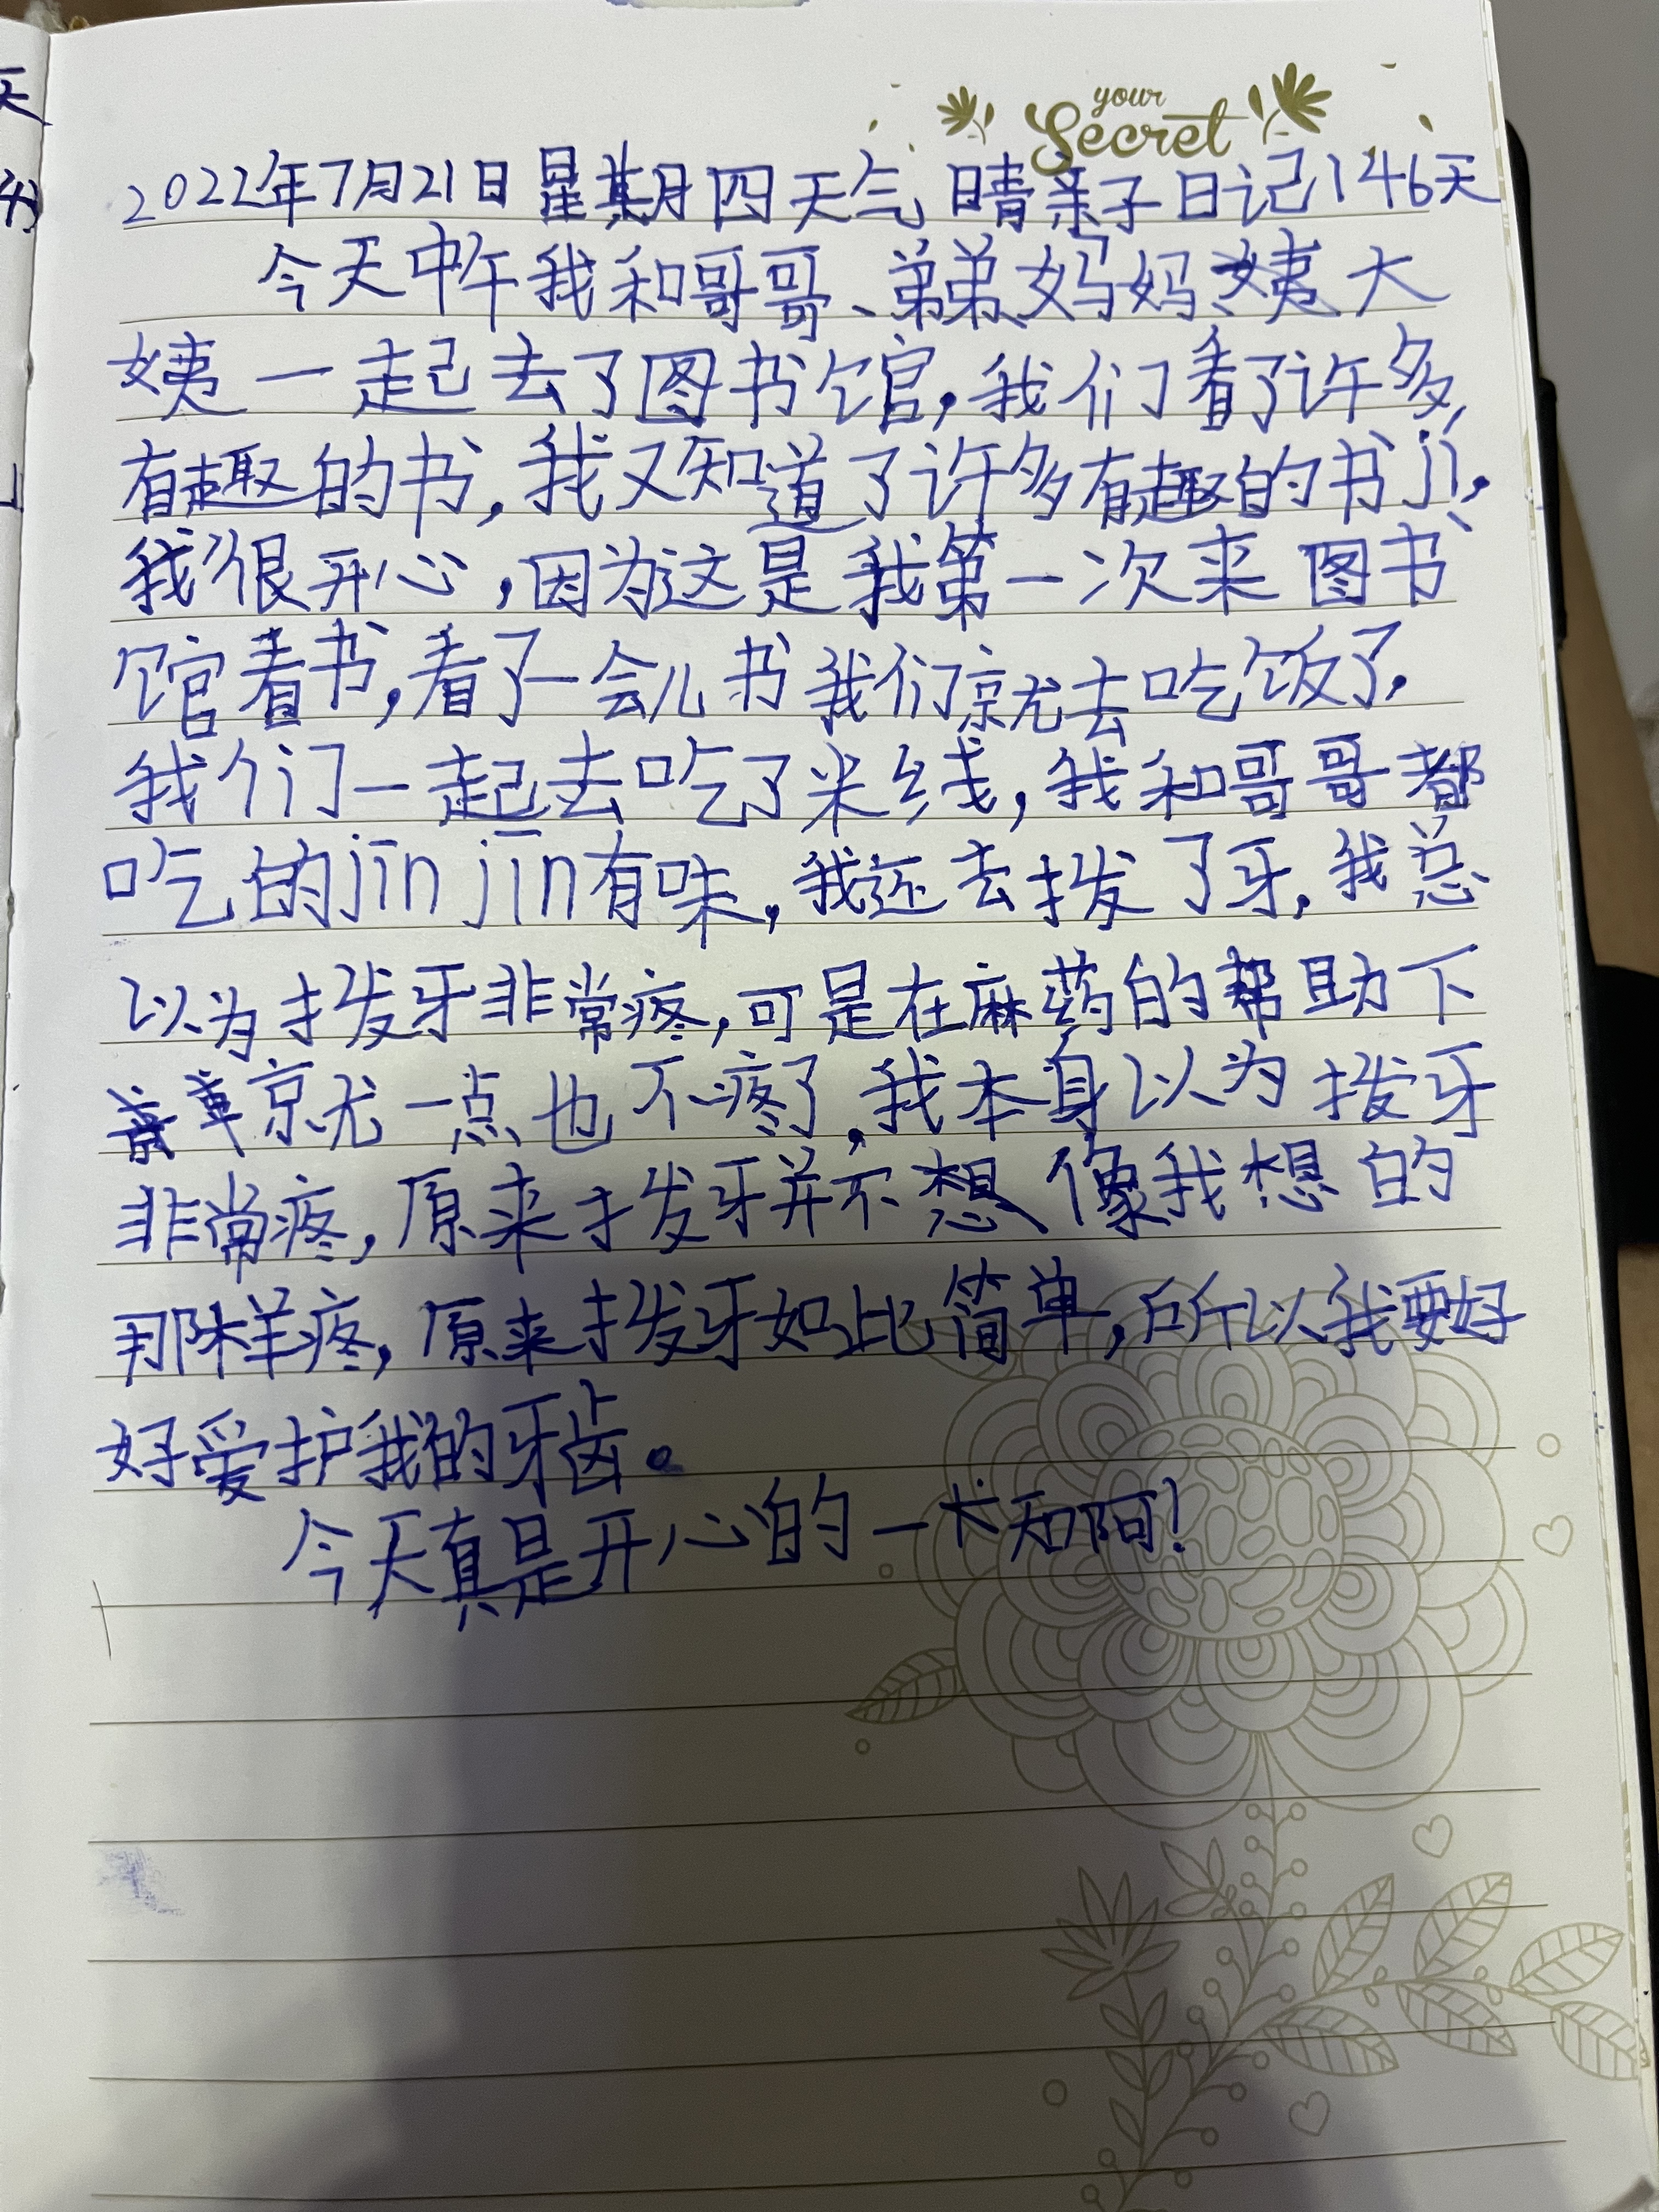 your
Secret
2022年7月21日星期四天气晴亲子日记146天
今天中午我和哥哥、弟弟、妈妈、大
姨一起去了图书馆,我们看了许多
有趣的书,我又知道了许多有趣的书jí,
我很开心,因为这是我第一次来图书
馆看书,看了一会儿书我们就去吃饭了.
我们一起去吃了米线,我和哥哥都
吃的jīn jīn有味,我还去拨了牙,我总
以为拨牙非常疼,可是在麻药的帮助下
就一点也不疼了,我本身以为拨牙
非常疼,原来拨牙并不想像我想的
那样疼,原来拨牙如此简单,所以我要好
好爱护我的牙齿。
今天真是开心的一天啊!
天